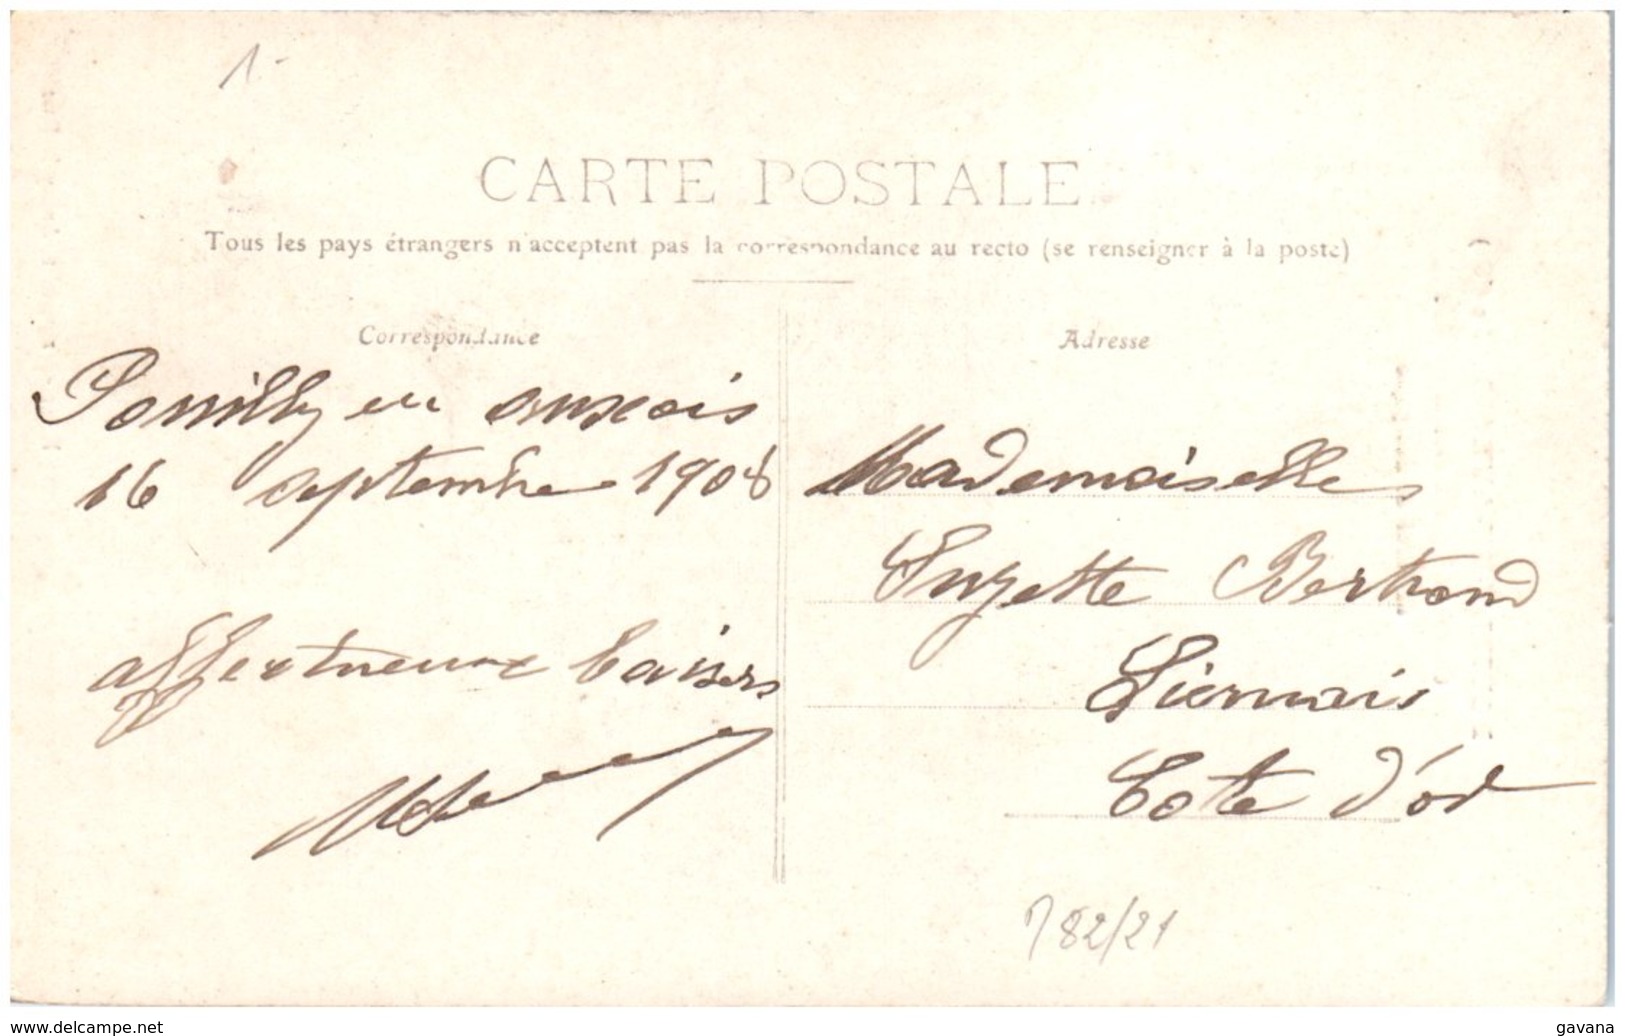 1.-
CARTE POSTALE
Tous les pays étrangers n'acceptent pas la correspondance au recto (se renseigner à la poste)
Correspondance
Pouilly en auxois
16 septembre 1908
affectueux baisers
Adresse
Mademoiselle
Suzette Bertrand
Liernais
Cote d'or
782/21
www.delcampe.net
gavana